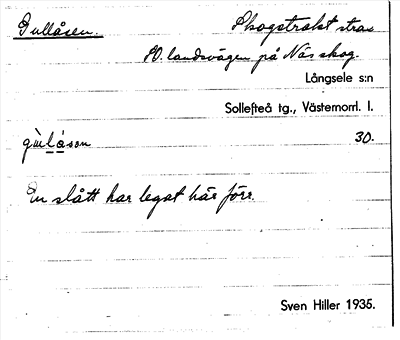 Gullåsen. Skogstrakt strax
SO. landsvägen på Nässkog.
Långsele s:n
Sollefteå tg., Västernorrl. l.
gùlåsən 30.
En slått har legat här förr.
Sven Hiller 1935.